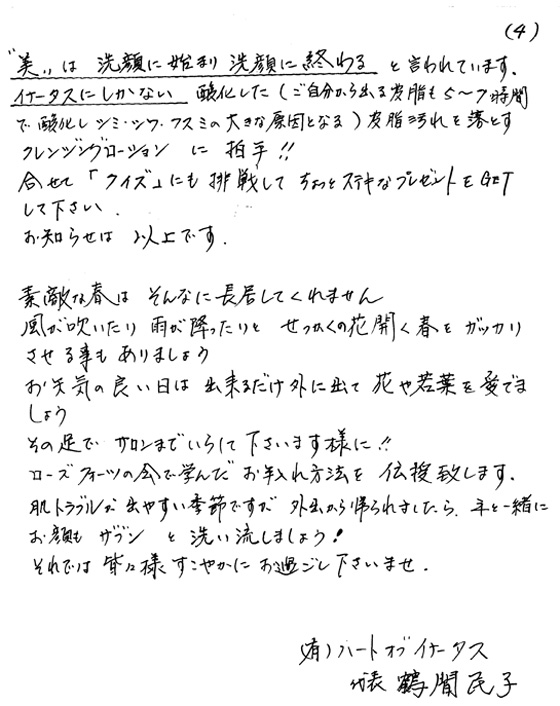 (4)
"美"は 洗顔に始まり 洗顔に終わる と言われています.
イータスにしかない 酸化した(ご自分から出る皮脂も5〜7時間
で酸化し シミ・シワ・クスミの大きな原因となる)皮脂汚れを落とす
クレンジングローション に 拍手!!
合せて「クイズ」にも 挑戦して ちょっとステキなプレゼントをGET
して下さい.
お知らせは 以上です.
素敵な春は そんなに長居してくれません
風が吹いたり 雨が降ったりと せっかくの花開く春を ガッカリ
させる事も ありましょう
お天気の良い日は 出来るだけ外に出て 花や若葉を愛でま
しょう
その足で サロンまでいらして下さいます様に!!
ローズフォーツの会で学んだ お手入れ方法を 伝授致します.
肌トラブルが出やすい季節ですが 外出から帰られましたら、手と一緒に
お顔も ザブン と洗い流しましょう!
それでは 皆々様 すこやかに お過ごし下さいませ.
(有)ハートオブイータス
代表 鶴間民子